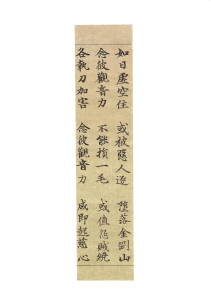 如日虚空住 或被惡人逐 墮落金剛山
念彼觀音力 不能損一毛 或值怨賊繞
各執刀加害 念彼觀音力 咸即起慈心